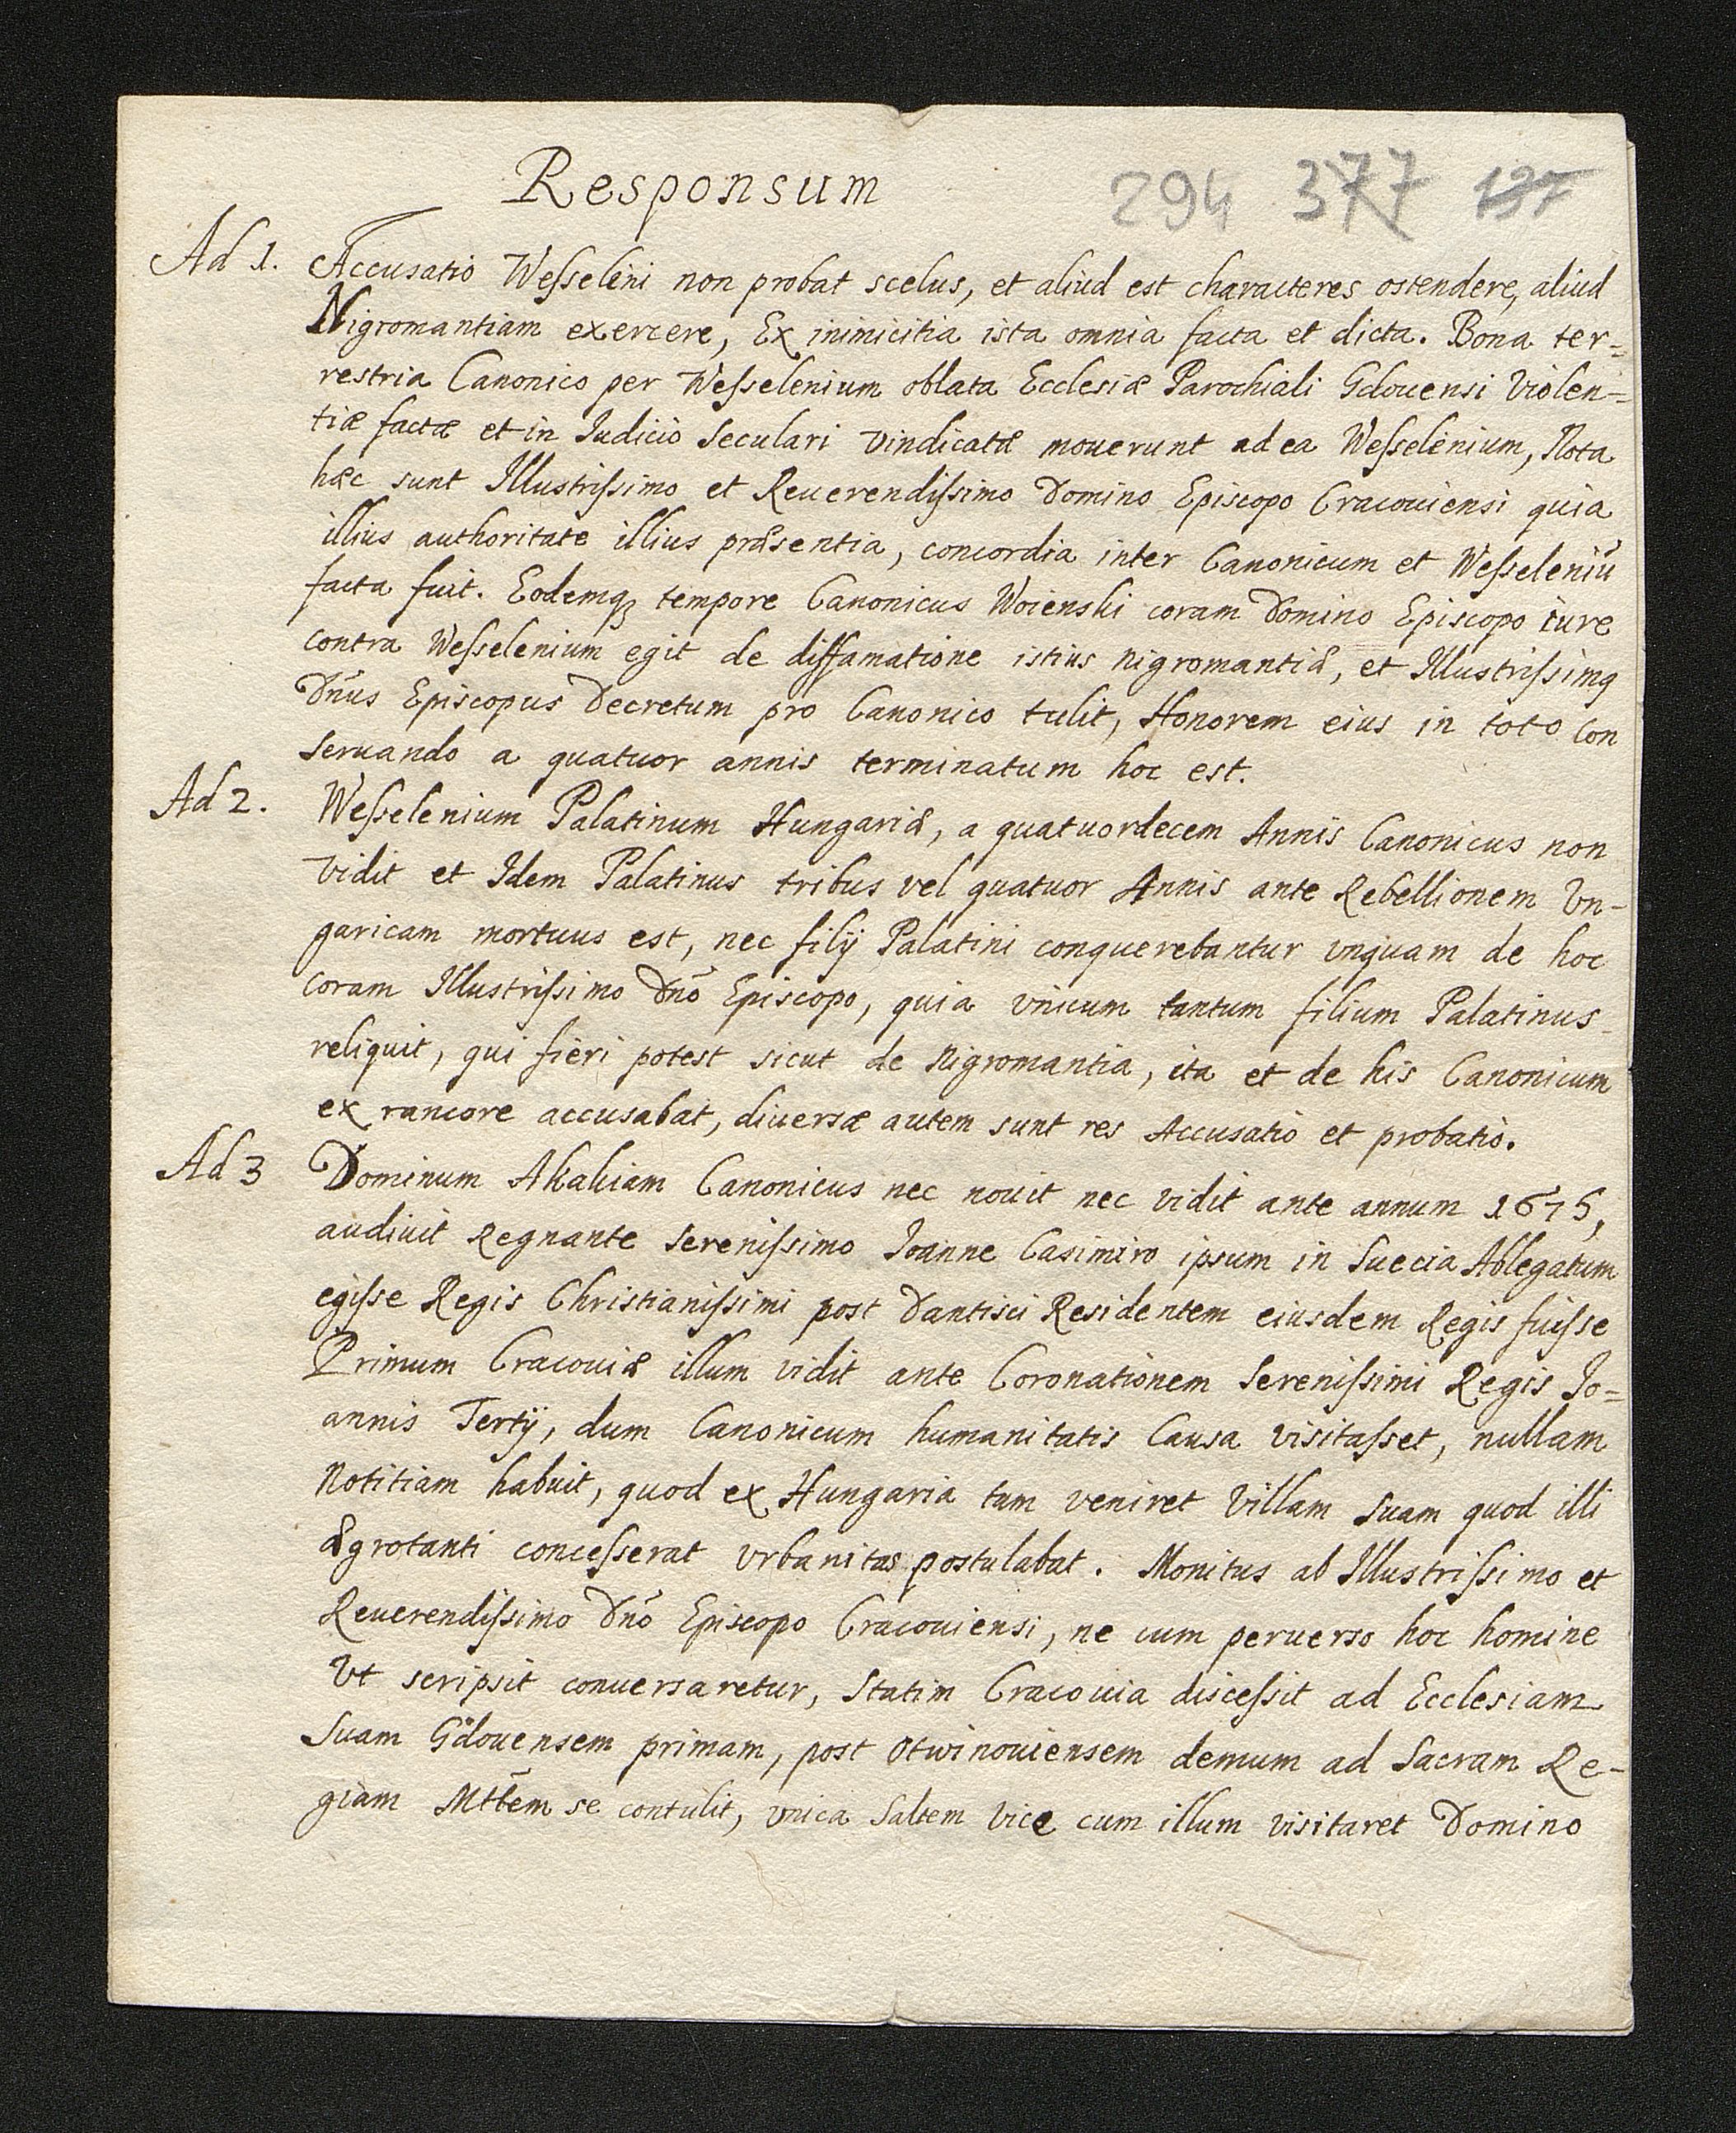 Responsum
294 377 137
Ad 1. Accusatio Wesselini non probat scelus, et aliud est characteres ostendere, aliud
Nigromantiam exercere, Ex inimicitia ista omnia facta et dicta. Bona ter=
restria Canonico per Wesselenium oblata Ecclesiæ Parochiali Gdouensi Violen=
tiæ factæ et in Iudicio Seculari vindicatæ mouerunt ad ea Wesselenium, Nota
hæc sunt Illustrissimo et Reuerendissimo Domino Episcopo Cracouiensi quia
illius authoritate illius præsentia, concordia inter Canonicum et Wesseleniū
facta fuit. Eodemq3 tempore Canonicus Woienski coram Domino Episcopo iure
contra Wesselenium egit de diffamatione istius nigromantiæ, et Illustrissimq
Dn̄us Episcopus Decretum pro Canonico tulit, Honorem eius in toto con
seruando a quatuor annis terminatum hoc est.
Ad 2. Wesselenium Palatinum Hungariæ, a quatuordecem Annis Canonicus non
vidit et Idem Palatinus tribus vel quatuor Annis ante Rebellionem Vn-
garicam mortuus est, nec filij Palatini conquerebantur vnquam de hoc
coram Illustrissimo Dn̄o Episcopo, quia vnicum tantum filium Palatinus
reliquit, qui fieri potest sicut de Nigromantia, ita et de his Canonicum
ex rancore accusabat, diuersæ autem sunt res Accusatio et probatio.
Ad 3 Dominum Akakiam Canonicus nec nouit nec vidit ante annum 1675,
audiuit Regnante Serenissimo Ioanne Casimiro ipsum in Suecia Ablegatum
egisse Regis Christianissimi post Dantisci Residentem eiusdem Regis fuisse
Primum Cracouiæ illum vidit ante Coronationem Serenissimi Regis Jo=
annis Tertij, dum Canonicum humanitatis Causa visitasset, nullam
Notitiam habuit, quod ex Hungaria tum veniret Villam suam quod illi
ægrotanti concesserat vrbanitas postulabat. Monitus ab Illustrissimo et
Reuerendissimo Dn̄o Episcopo Cracouiensi, ne cum peruerso hoc homine
Vt scripsit conuersaretur, Statim Cracouia discessit ad Ecclesiam
Suam Gdouensem primam, post Otwinouiensem demum ad Sacram Re-
giam Mttēm se contulit, vnica Saltem vice cum illum visitaret Domino